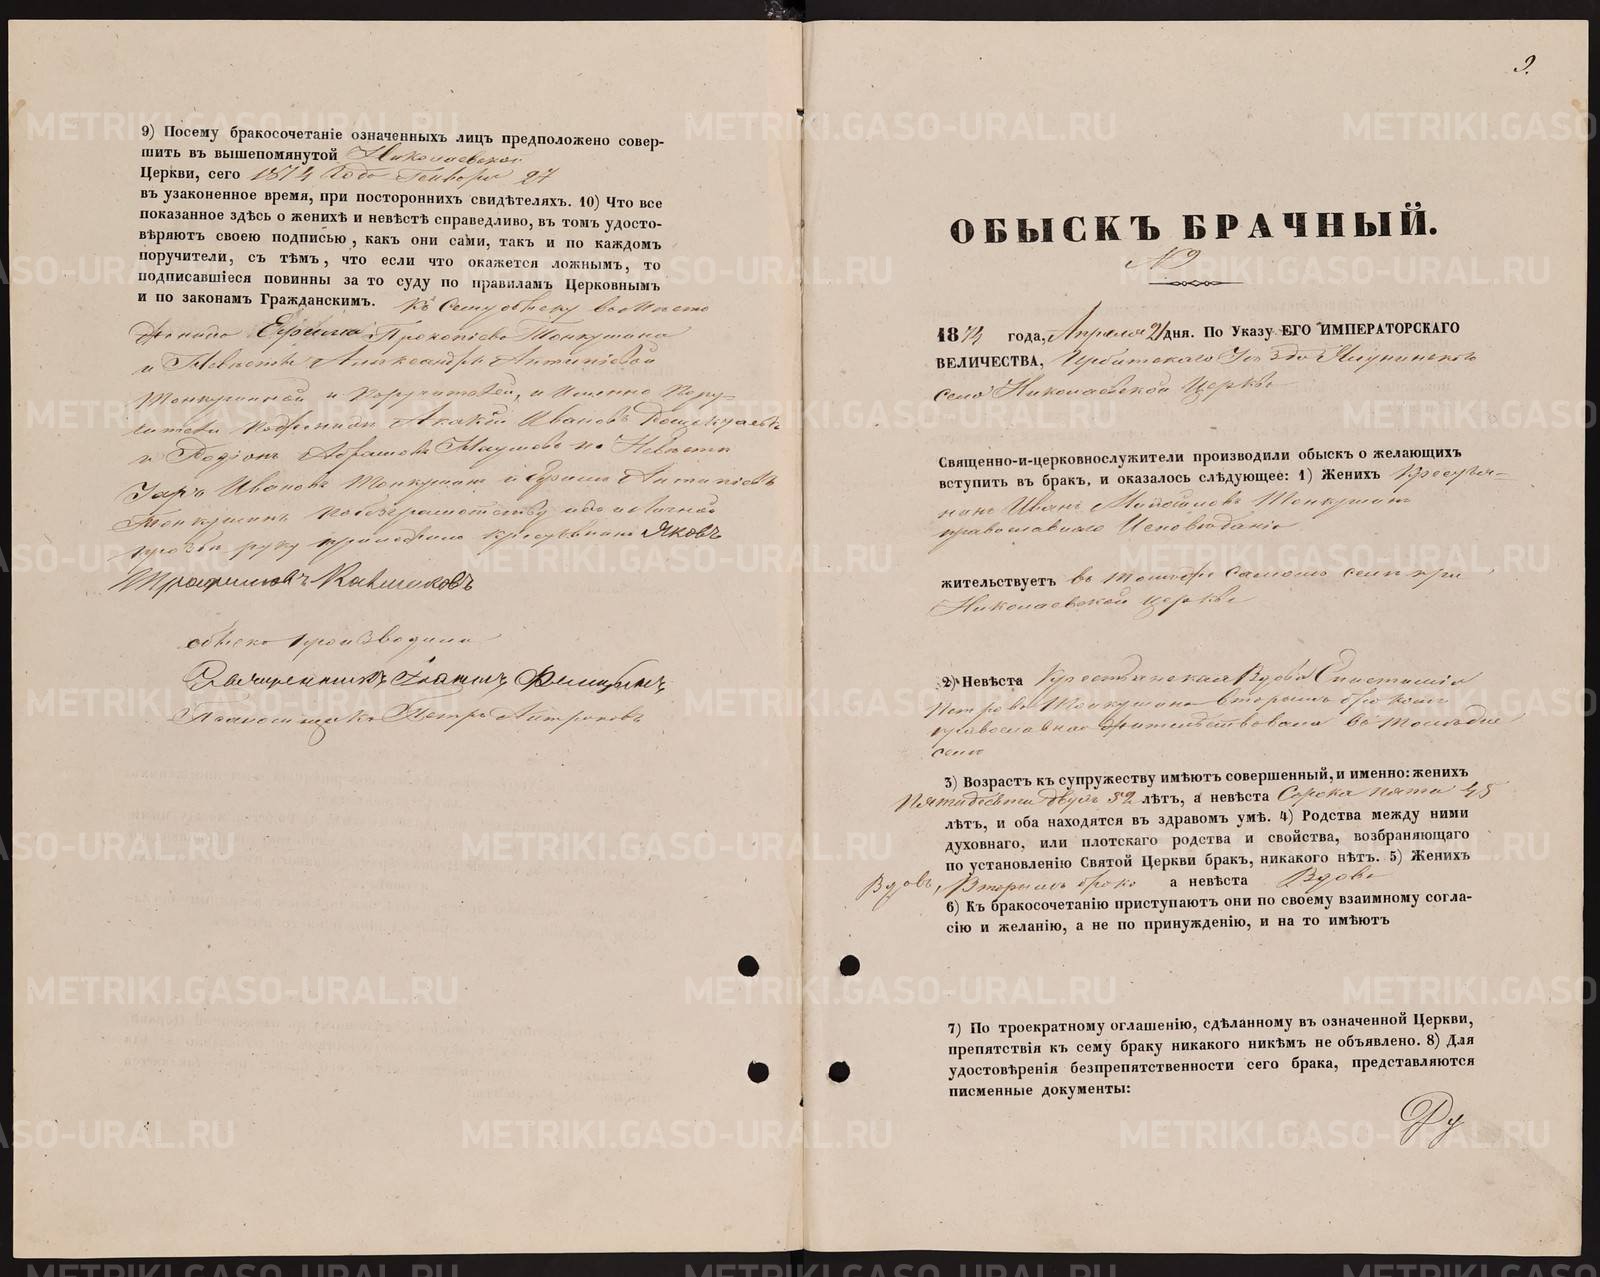 9) Посему бракосочетаніе означенныхъ лицъ предположено совер-
шить въ вышепомянутой Николаевской
Церкви, сего 1874 Года Генваря 27
въ узаконенное время, при постороннихъ свидѣтеляхъ. 10) Что все
показанное здѣсь о женихѣ и невѣстѣ справедливо, въ томъ удосто-
вѣряютъ своею подписью, какъ они сами, такъ и по каждомъ
поручители, съ тѣмъ, что если что окажется ложнымъ, то
подписавшіеся повинны за то суду по правиламъ Церковнымъ
и по законамъ Гражданскимъ. Къ Сему обыску вместо
Жениха Ефима Прокопіева Тонкушина
и Невесты Александры Антипіевой
Тонкушиной и Поручителей, и Именно Пору-
чители по Иванова
и Родіонъ Абрамовъ по Невесте
Иванова Тонкушинъ и Антипіевъ
Тонкушинъ по безграмотству ихъ и личной
прозьбе руку приложилъ крестьянинъ Яковъ
обыскъ производили
Священникъ Іоаннъ
Псаломщикъ Петръ
9.
ОБЫСКЪ БРАЧНЫЙ.
№ 9
1874 года, Апреля 21 дня. По Указу ЕГО ИМПЕРАТОРСКАГО
ВЕЛИЧЕСТВА, Ирбитскаго Уезда
села Николаевской Церкви
Священно-и-церковнослужители производили обыскъ о желающихъ
вступить въ бракъ, и оказалось слѣдующее: 1) Женихъ Крестья-
нинъ Иванъ Тонкушинъ
православнаго Исповеданія
жительствуетъ въ томъ же самомъ селе при
Николаевской церкве
2) Невѣста Крестьянская Вдова
Петрова Тонкушина вторымъ бракомъ
православная жительствовала въ томъ же
селе
3) Возрастъ къ супружеству имѣютъ совершенный, и именно: женихъ
Пятидесяти двухъ 52 лѣтъ, а невѣста Сорока пяти 45
лѣтъ, и оба находятся въ здравомъ умѣ. 4) Родства между ними
духовнаго, или плотскаго родства и свойства, возбраняющаго
по установленію Святой Церкви бракъ, никакого нѣтъ. 5) Женихъ
Вдовъ, Вторымъ бракомъ а невѣста Вдова
6) Къ бракосочетанію приступаютъ они по своему взаимному согла-
сію и желанію, а не по принужденію, и на то имѣютъ
7) По троекратному оглашенію, сдѣланному въ означенной Церкви,
препятствія къ сему браку никакого никѣмъ не объявлено. 8) Для
удостовѣренія безпрепятственности сего брака, представляются
писменные документы:
METRIKI.GASO-URAL.RU